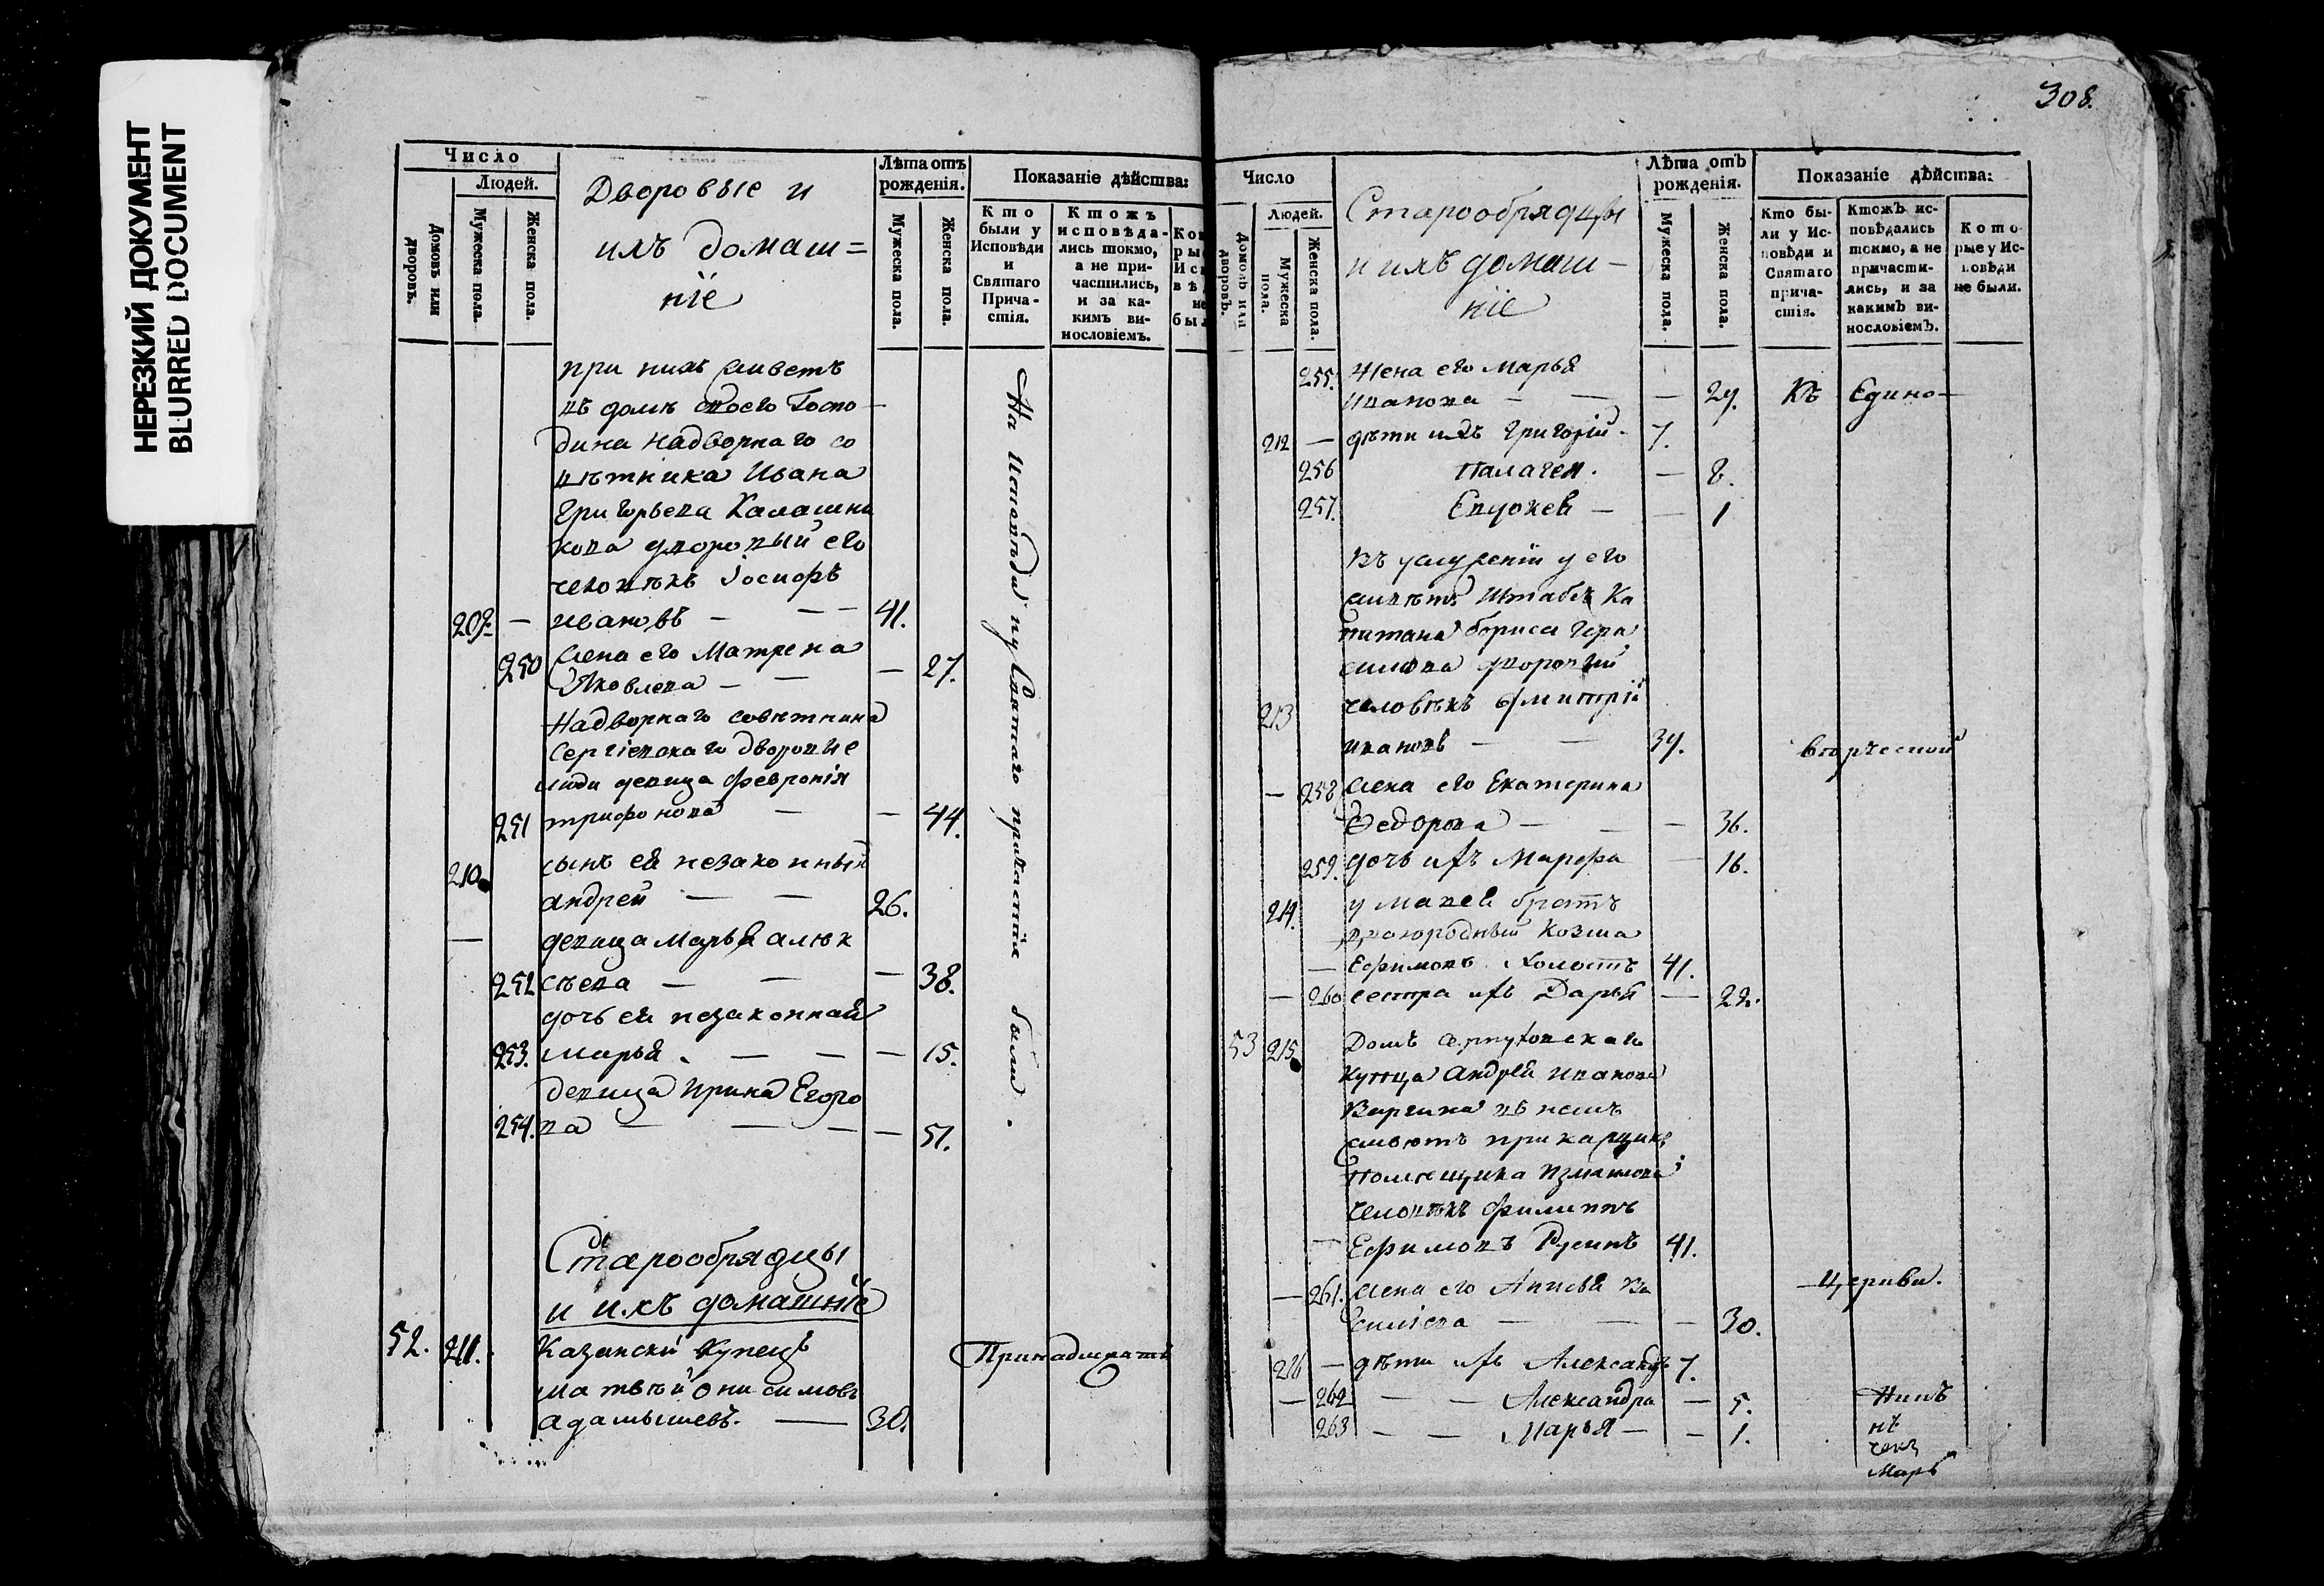 НЕРЕЗКИЙ ДОКУМЕНТ
BLURRED DOCUMENT
Число
Людей.
Домовъ или дворовъ.
Мужеска пола.
Женска пола.
Дворовые и
ихъ домаш=
ніе
Лѣта отъ рожденія.
Мужеска пола.
Женска пола.
Показаніе дѣйства:
Кто были у Исповѣди и Святаго Прича-стія.
Ктожъ исповѣда-лись токмо, а не при-частились, и за ка-кимъ ви-нословіемъ.
при нихъ живетъ
въ домѣ своего Госпо
дина надворнаго со
вѣтника Ивана
Григорьева Калашни
кова дворовый его
человѣкъ Іосифъ
209 — Ивановъ — — 41.
250 жена его Матрена
Яковлева — — — 27.
Надворнаго советника
Сергіевскаго дворовые
люди девица Феврония
251 трифонова — — 44.
210. сынъ ея незаконный
андрей — — 26.
— девица Марья алек
252 сѣева — — 38.
дочь ея незаконная
253. марья. — — — 15.
девица Ирина Егоро
254. ва — — — — 51.
На Исповѣди и у Святаго причастія были.
Старообрядцы
и ихъ домашніе
52. 211. Казански купецъ
матвѣй Онисимовъ
адамышевъ. — 30.
Принадлежатъ
308.
Число
Людей.
Домовъ или дворовъ.
Мужеска пола.
Женска пола.
Старообрядцы
и ихъ домаш-
ніе
Лѣта отъ рожденія.
Мужеска пола.
Женска пола.
Показаніе дѣйства:
Кто бы-ли у Ис-повѣди и Святаго прича-стія.
Ктожъ ис-повѣдались токмо, а не причасти-лись, и за какимъ ви-нословіемъ.
Кото-рые у Ис-повѣди не были.
255. жена его Марья
Иванова — — — 29. Къ Едино-
212 — дѣти ихъ Григорій — 7.
256 Палагея. — 8.
257. Евдокея — — 1
въ услужении у его
живетъ Штабсъ Ка
питана бориса Гера
симова дворовый
213 человѣкъ дмитрій
ивановъ — — 39. вѣрческой
— 258 жена его Екатерина
Федорова — — — 36.
259. дочь ихъ Марфа — 16.
214. у матвея братъ
двоюродный Козма
— Ефимовъ холостъ 41.
— 260 сестра ихъ Дарья — 22.
53 215. Домъ серпуховскаго
купца Андрея иванова
Варгина въ немъ
живетъ прикащикъ
помещика Измаилова
человѣкъ филиппъ
— Ефимовъ Русинъ 41.
— 261. жена его Анисья Ва
силіева — — — 30. Церкви.
216 — дѣти ихъ Александръ 7.
— 262 — — Александра — 5.
263 — — Марья — — 1.